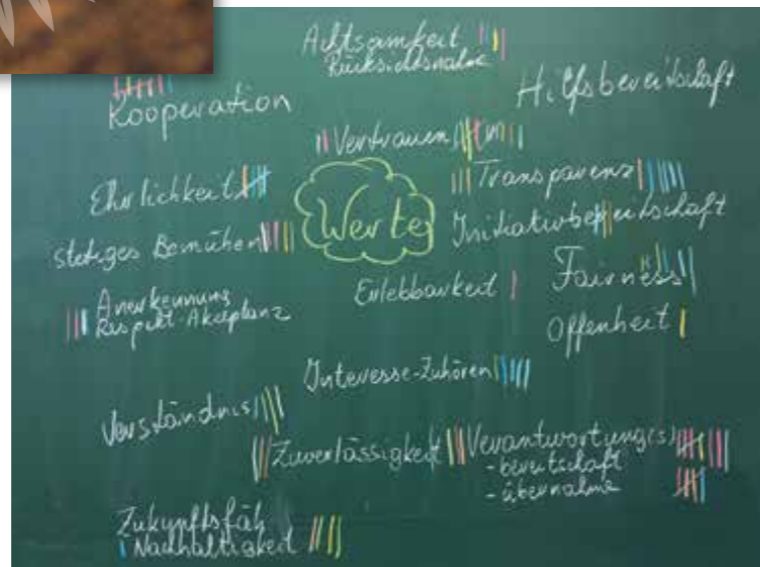 Achtsamkeit
Rücksichtsnahme
Hilfsbereitschaft
Kooperation
Vertrauen
Ehrlichkeit
Transparenz
Werte
Initiativbereitschaft
stetiges Bemühen
Fairness
Erlebbarkeit
Anerkennung
Respekt-Akzeptanz
Offenheit
Interesse-Zuhören
Verständnis
Zuverlässigkeit
Verantwortung(s)
- bereitschaft
- übernahme
Zukunftsfäh
Nachhaltigkeit